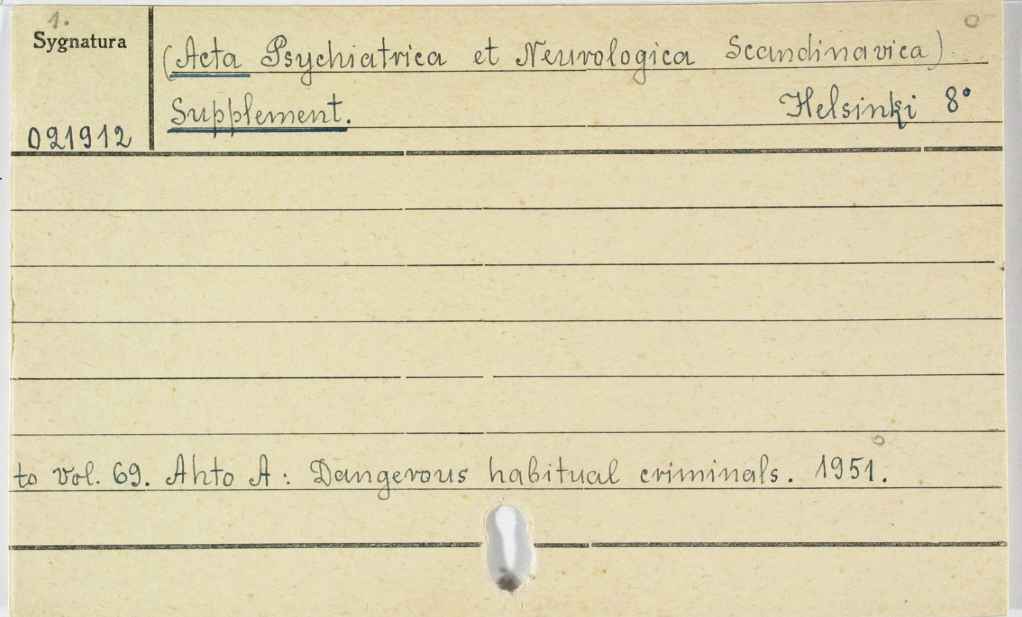 1.
Sygnatura
(Acta Psychiatrica et Neurologica Scandinavica)
Supplement. Helsinki 8°
021912
to vol. 69. Ahto A: Dangerous habitual criminals. 1951.